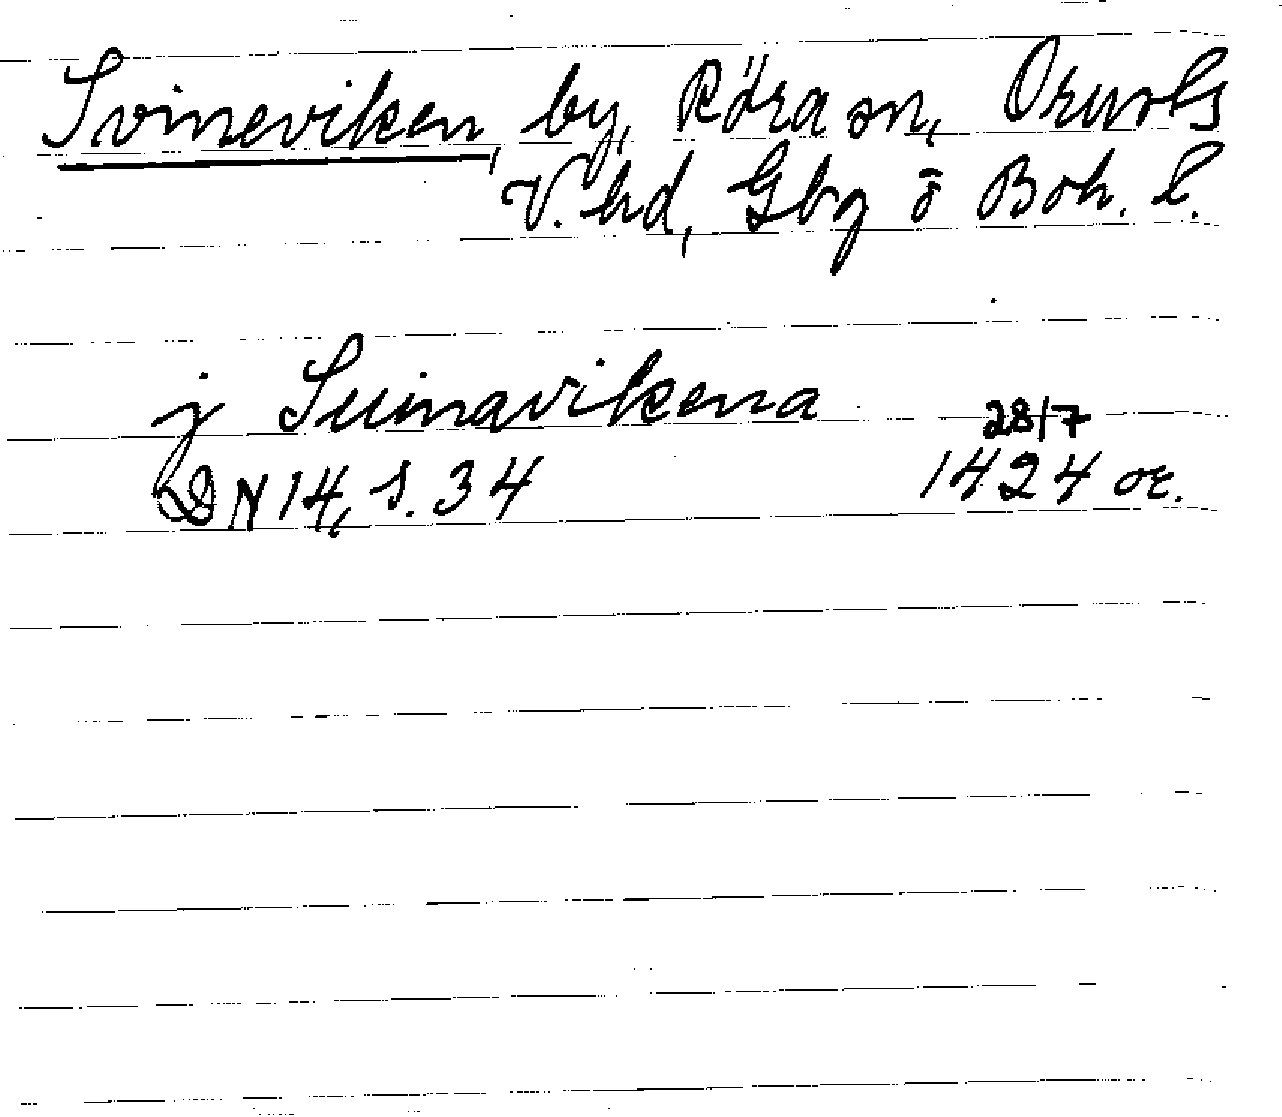 Svineviken, by, Röra sn, Orusts
V. hd, Gbg o Boh. l.
j Suinavikena
28/7
DN 14, s. 34 1424 or.